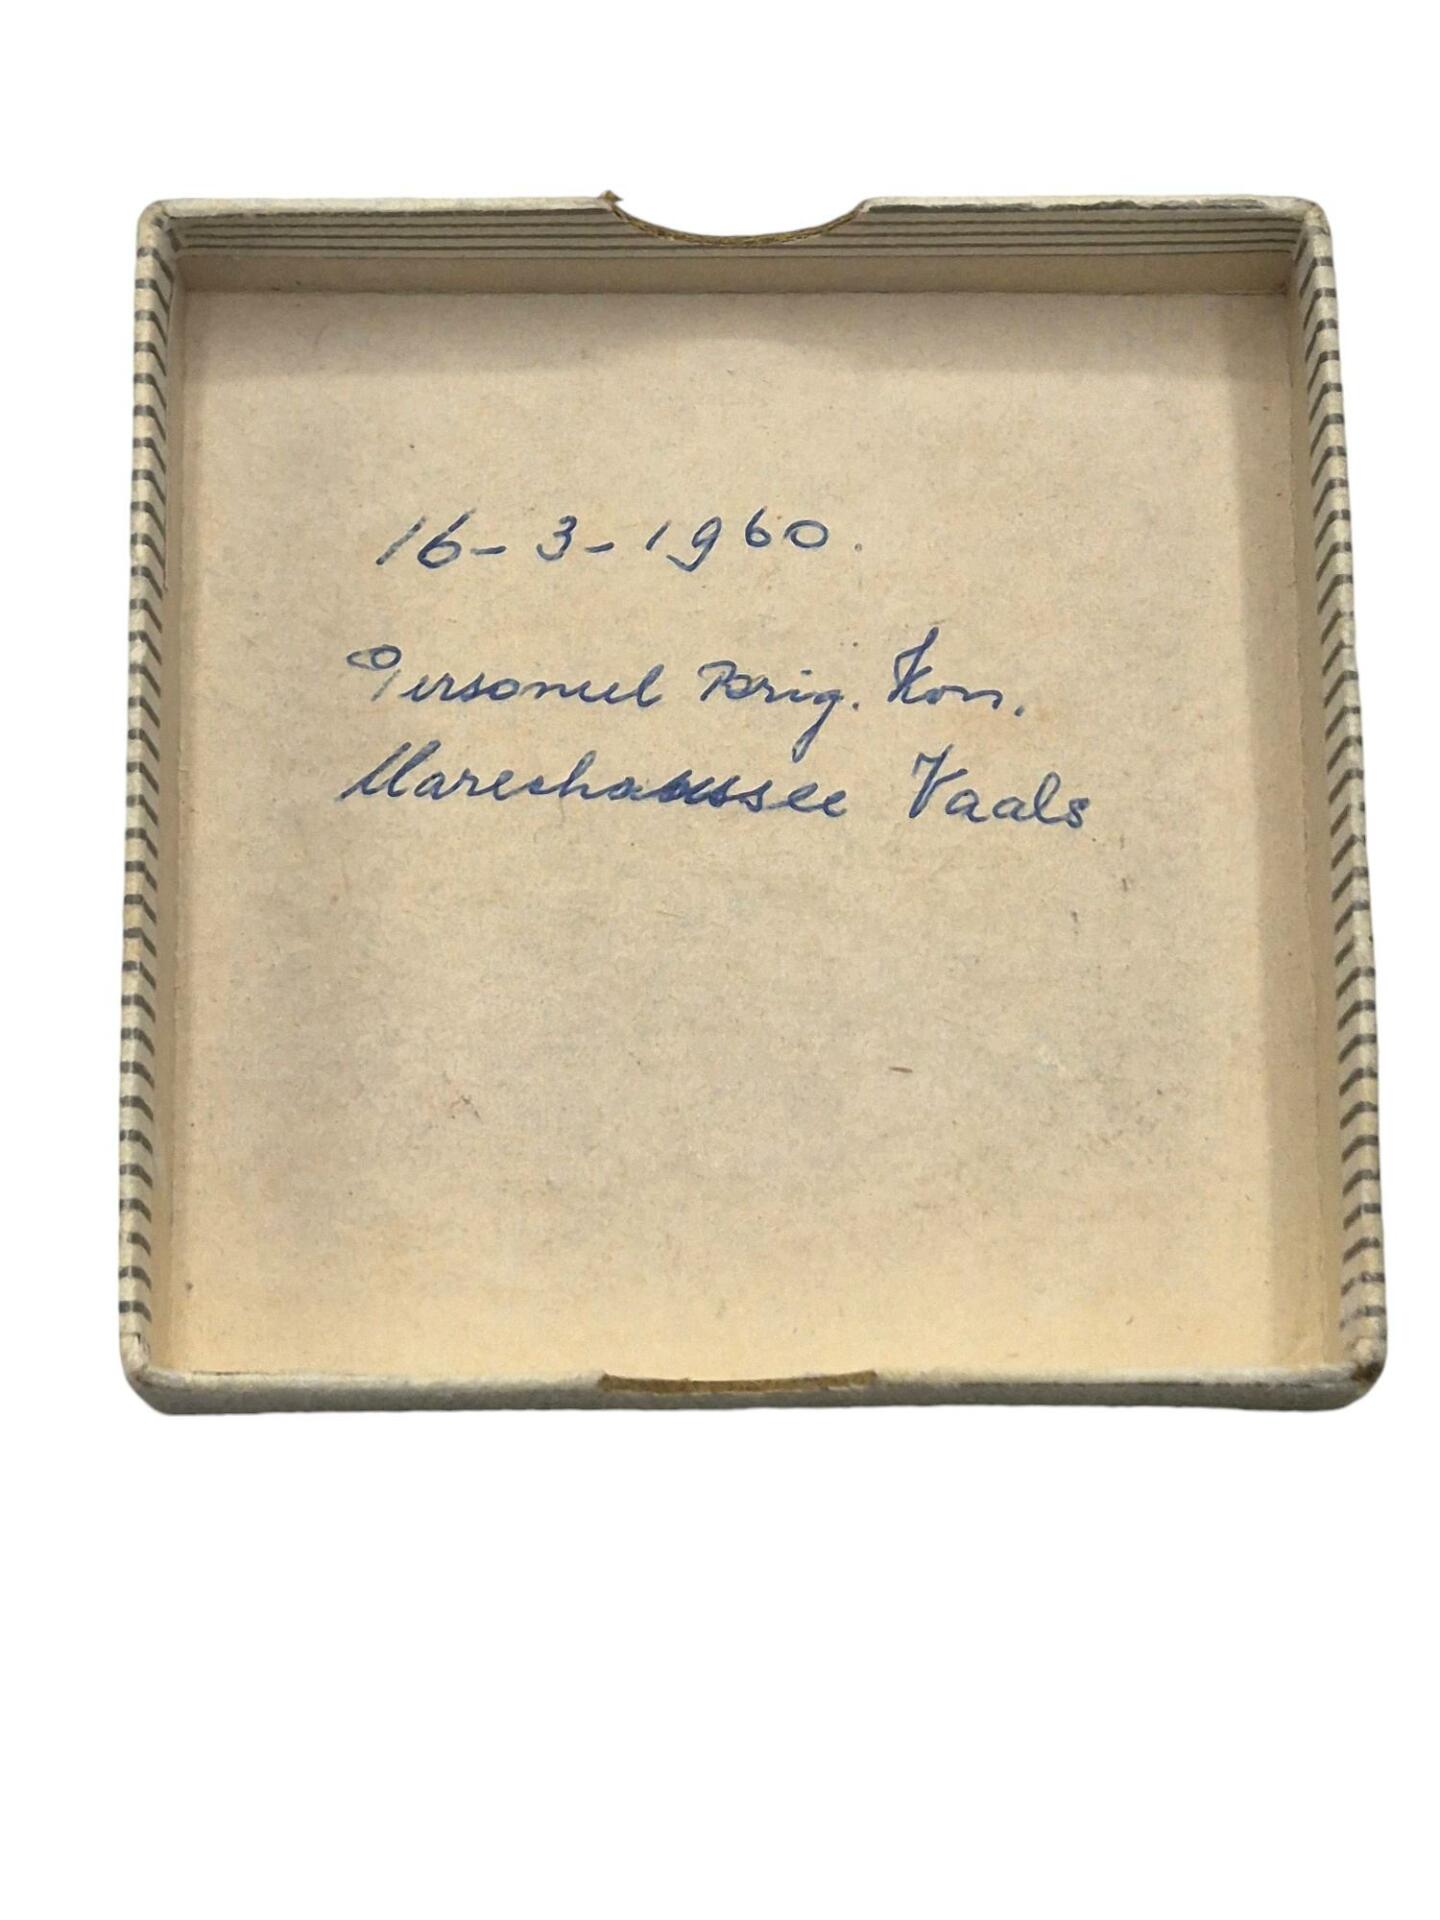 16-3-1960.
Personeel Brig. Kon.
Marechaussee Vaals